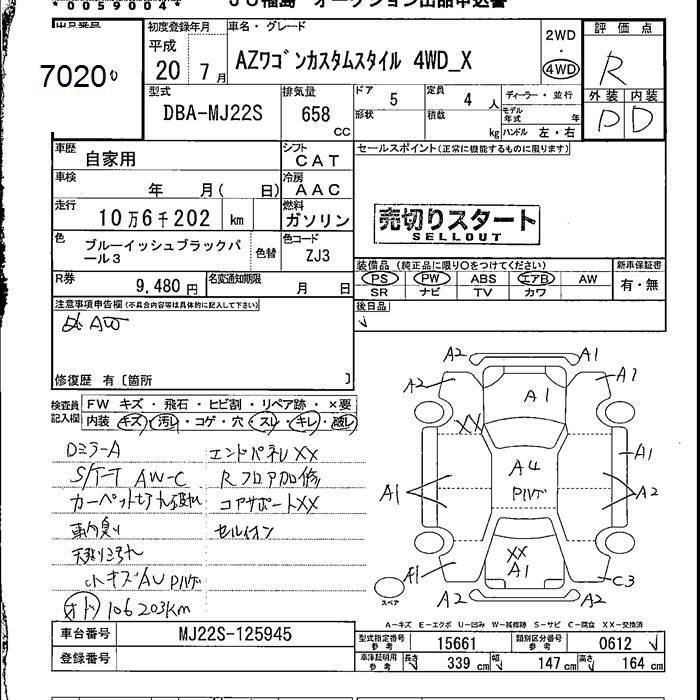 *0059004*
JU福島 オークション出品申込書
7020
初度登録年月 車名・グレード
平成 20年 7月
AZワゴンカスタムスタイル 4WD_X
2WD ・ 4WD
評価点
R
外装 内装
D D
型式 DBA-MJ22S
排気量 658 CC
ドア 5 定員 4人
形状 積載 kg
ディーラー・並行
モデル年式 年
ハンドル 左・右
車歴 自家用
シフト CAT
セールスポイント(正常に機能するものに限ります)
車検 年 月( 日)
冷房 AAC
走行 10万6千202 km
燃料 ガソリン
売切りスタート
SELLOUT
色 ブルーイッシュブラックパール3
色替
色コード ZJ3
R券 9,480円
名変通知期限 月 日
装備品(純正品に限り○をつけてください)
PS PW ABS エアB AW
SR ナビ TV カワ
新車保証書
有・無
注意事項申告欄(不具合内容等は具体的に記入して下さい)
後日品
修復歴 有〔箇所 〕
検査員記入欄
FW キズ・飛石・ヒビ割・リペア跡・×要
内装 キズ・汚レ・コゲ・穴・スレ・キレ・破レ
DミラーA
S/T-T AW-C
エンドパネルXX
Rフロア加修
コアサポートXX
天張りヨゴレ
小キズAU
オド 106203km
A2 A1
A2 A1 A1
XX
A1 A4 A1
A2
XX
A1 A1
C3
A2 A2
スペア
A-キズ E-エクボ U-凹み W-補修跡 S-サビ C-腐食 XX-交換済
車台番号 MJ22S-125945
登録番号
型式指定番号 参考 15661
類別区分番号 参考 0612
車庫証明用 参考 長さ 339 cm 幅 147 cm 高さ 164 cm